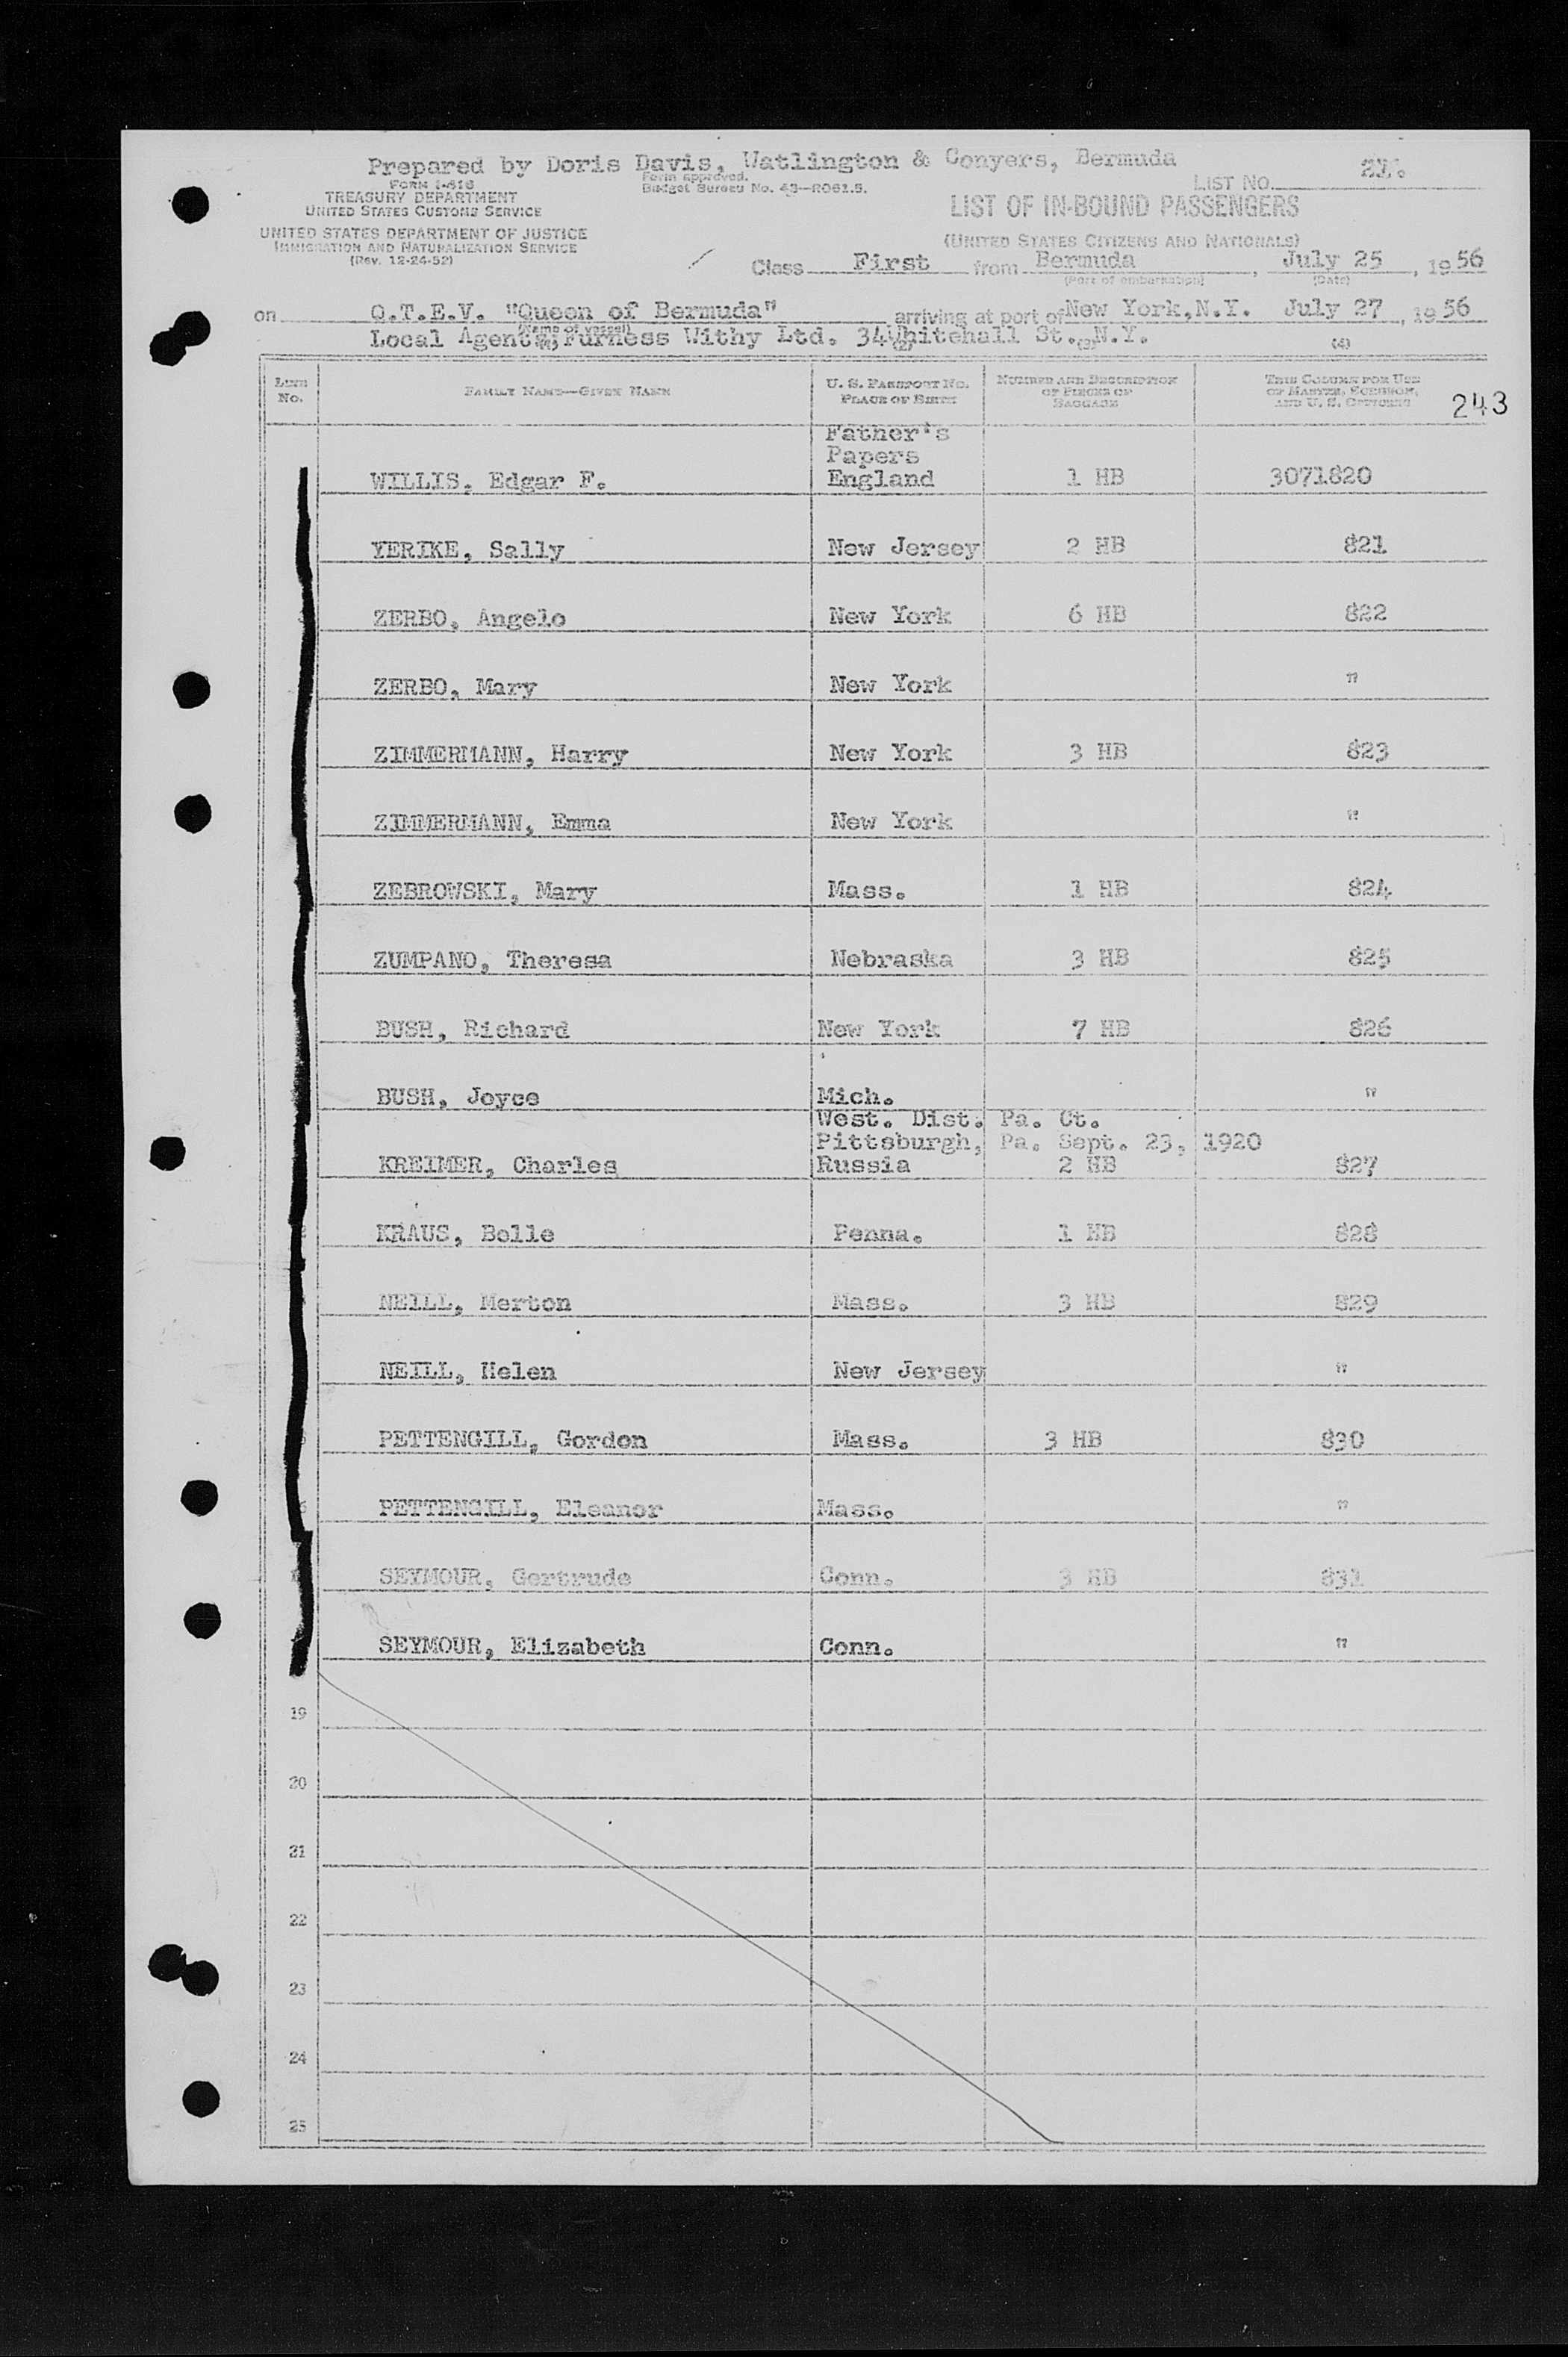 Prepared by Doris Davis, Watlington & Conyers, Bermuda
FORM I-418
TREASURY DEPARTMENT
UNITED STATES CUSTOMS SERVICE
UNITED STATES DEPARTMENT OF JUSTICE
IMMIGRATION AND NATURALIZATION SERVICE
(Rev. 12-24-52)
Form approved.
Budget Bureau No. 43—R061.5.
LIST NO.
LIST OF IN-BOUND PASSENGERS
(UNITED STATES CITIZENS AND NATIONALS)
Class First from Bermuda, July 25, 1956
(Port of embarkation) (Date)
on Q.T.E.V. "Queen of Bermuda" arriving at port of New York, N.Y. July 27, 1956
(Name of vessel)
Local Agents, Furness Withy Ltd. 34 Whitehall St. N.Y.
(2) (3) (4)
LINE NO. FAMILY NAME—GIVEN NAME U. S. PASSPORT NO. PLACE OF BIRTH NUMBER AND DESCRIPTION OF PIECES OF BAGGAGE THIS COLUMN FOR USE OF MASTER, SURGEON, AND U. S. OFFICERS 243
Father's
Papers
WILLIS, Edgar F. England 1 HB 3071820
YERIKE, Sally New Jersey 2 HB 821
ZERBO, Angelo New York 6 HB 822
ZERBO, Mary New York "
ZIMMERMANN, Harry New York 3 HB 823
ZIMMERMANN, Emma New York "
ZEBROWSKI, Mary Mass. 1 HB 824
ZUMPANO, Theresa Nebraska 3 HB 825
BUSH, Richard New York 7 HB 826
BUSH, Joyce Mich. "
West. Dist. Pa. Ct.
Pittsburgh, Pa. Sept. 23, 1920
KREIMER, Charles Russia 2 HB 827
KRAUS, Belle Penna. 1 HB 828
NEILL, Merton Mass. 3 HB 829
NEILL, Helen New Jersey "
PETTENGILL, Gordon Mass. 3 HB 830
PETTENGILL, Eleanor Mass. "
SEYMOUR, Gertrude Conn. 3 HB 831
SEYMOUR, Elizabeth Conn. "
19
20
21
22
23
24
25